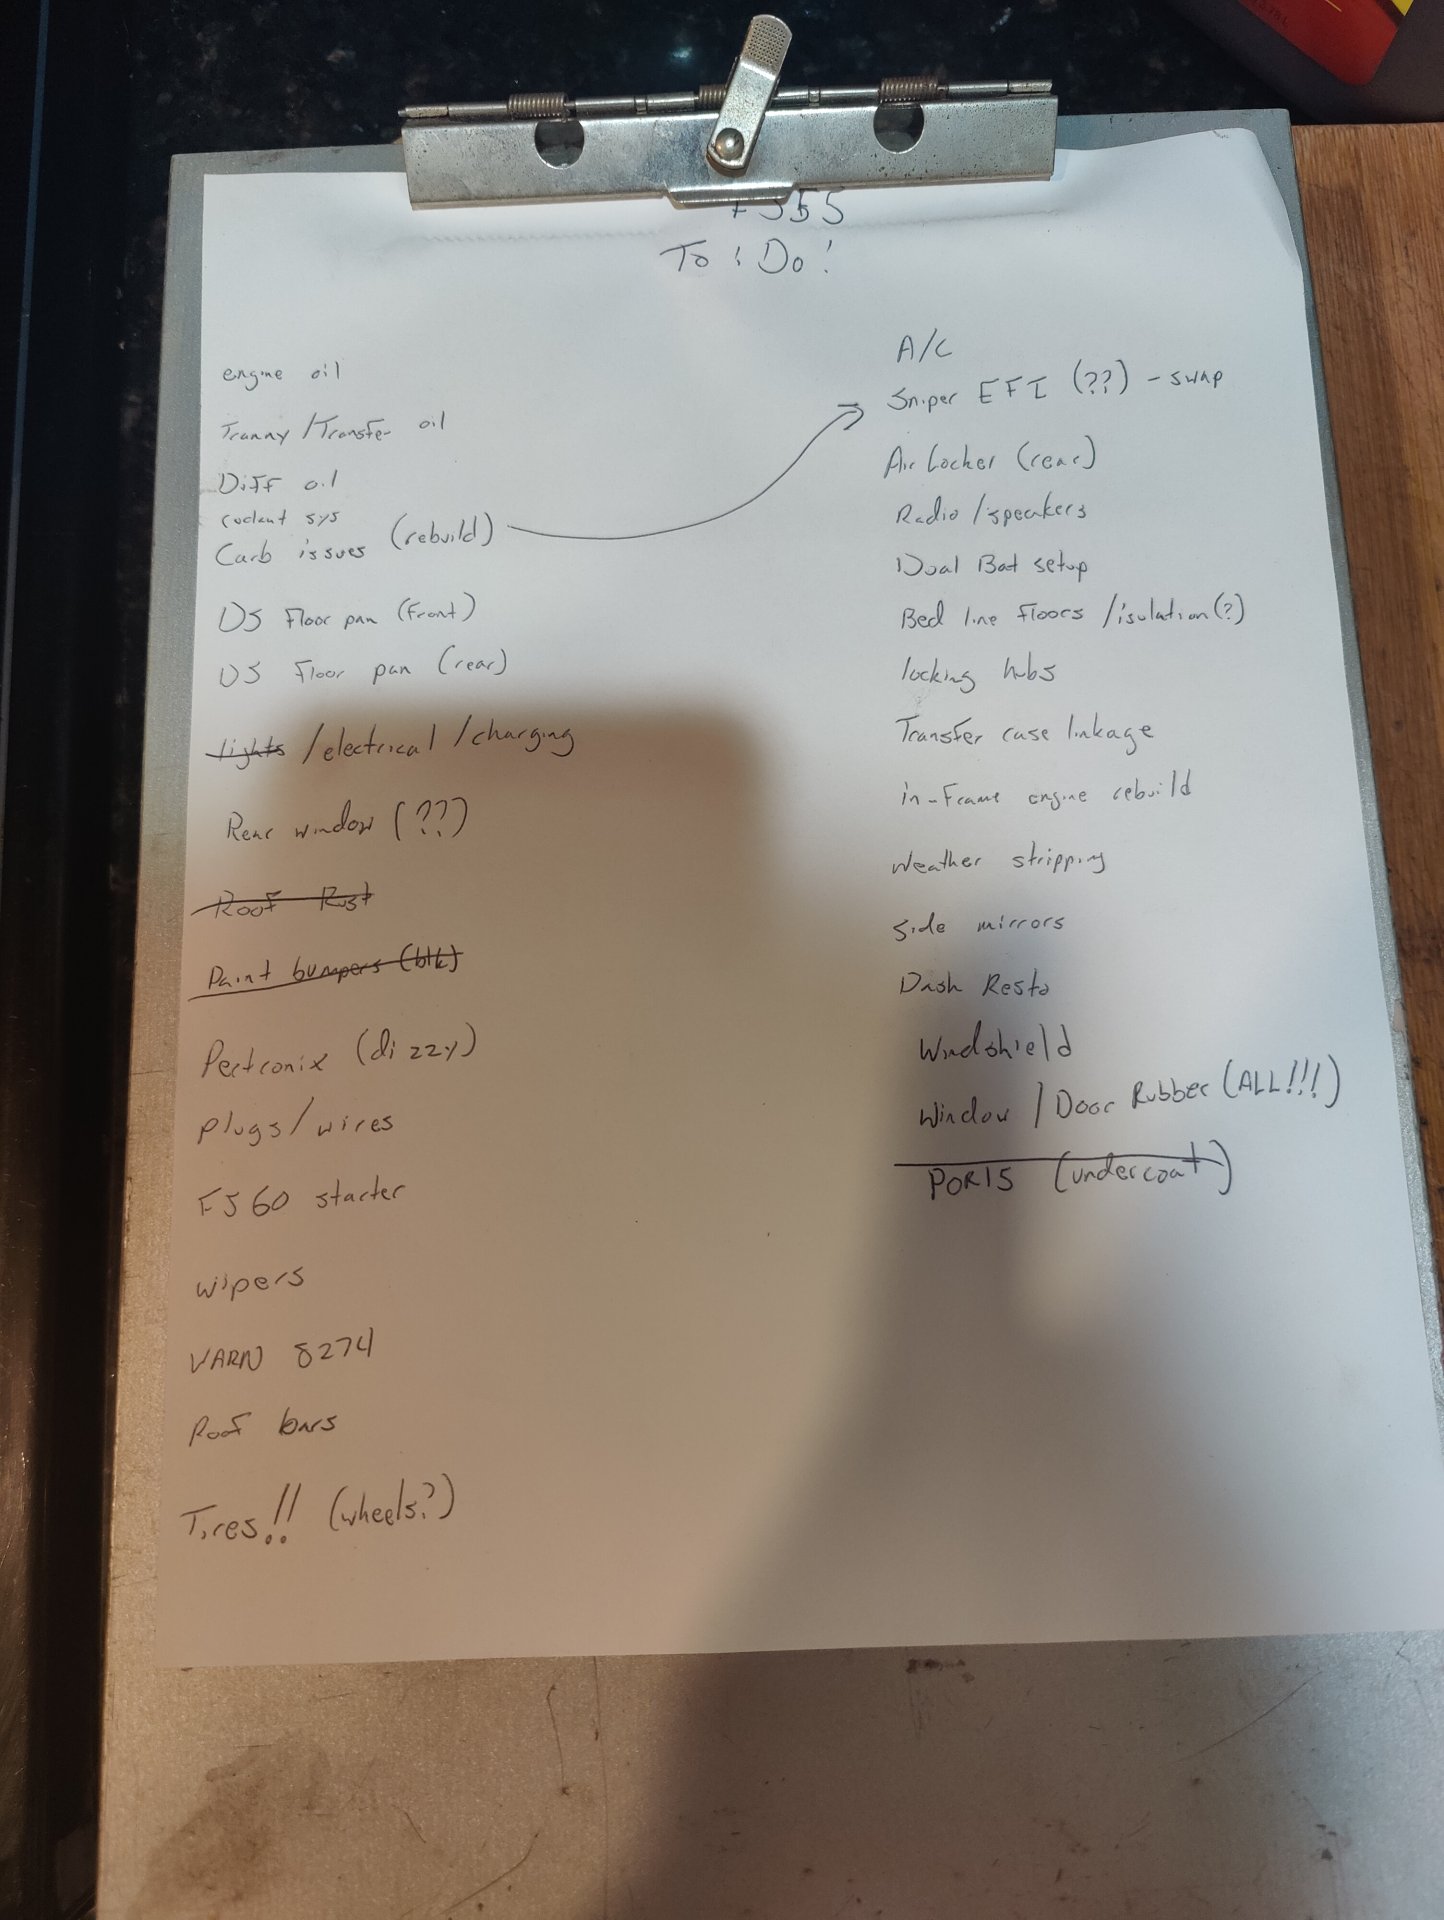 FJ55
To : Do !
engine oil
Tranny / Transfer oil
Diff oil
coolant sys
Carb issues (rebuild)
DS Floor pan (Front)
DS Floor pan (rear)
lights / electrical / charging
Rear window (??)
Roof Rust
Paint bumpers (blk)
Pertronix (dizzy)
plugs / wires
FJ60 starter
wipers
WARN 8274
Roof bars
Tires!! (wheels?)
A/C
Sniper EFI (??) - swap
Air Locker (rear)
Radio / speakers
Dual Bat setup
Bed line floors / isulation (?)
locking hubs
Transfer case linkage
in-Frame engine rebuild
Weather stripping
side mirrors
Dash Resto
Windshield
Window / Door Rubber (ALL!!!)
POR15 (undercoat)